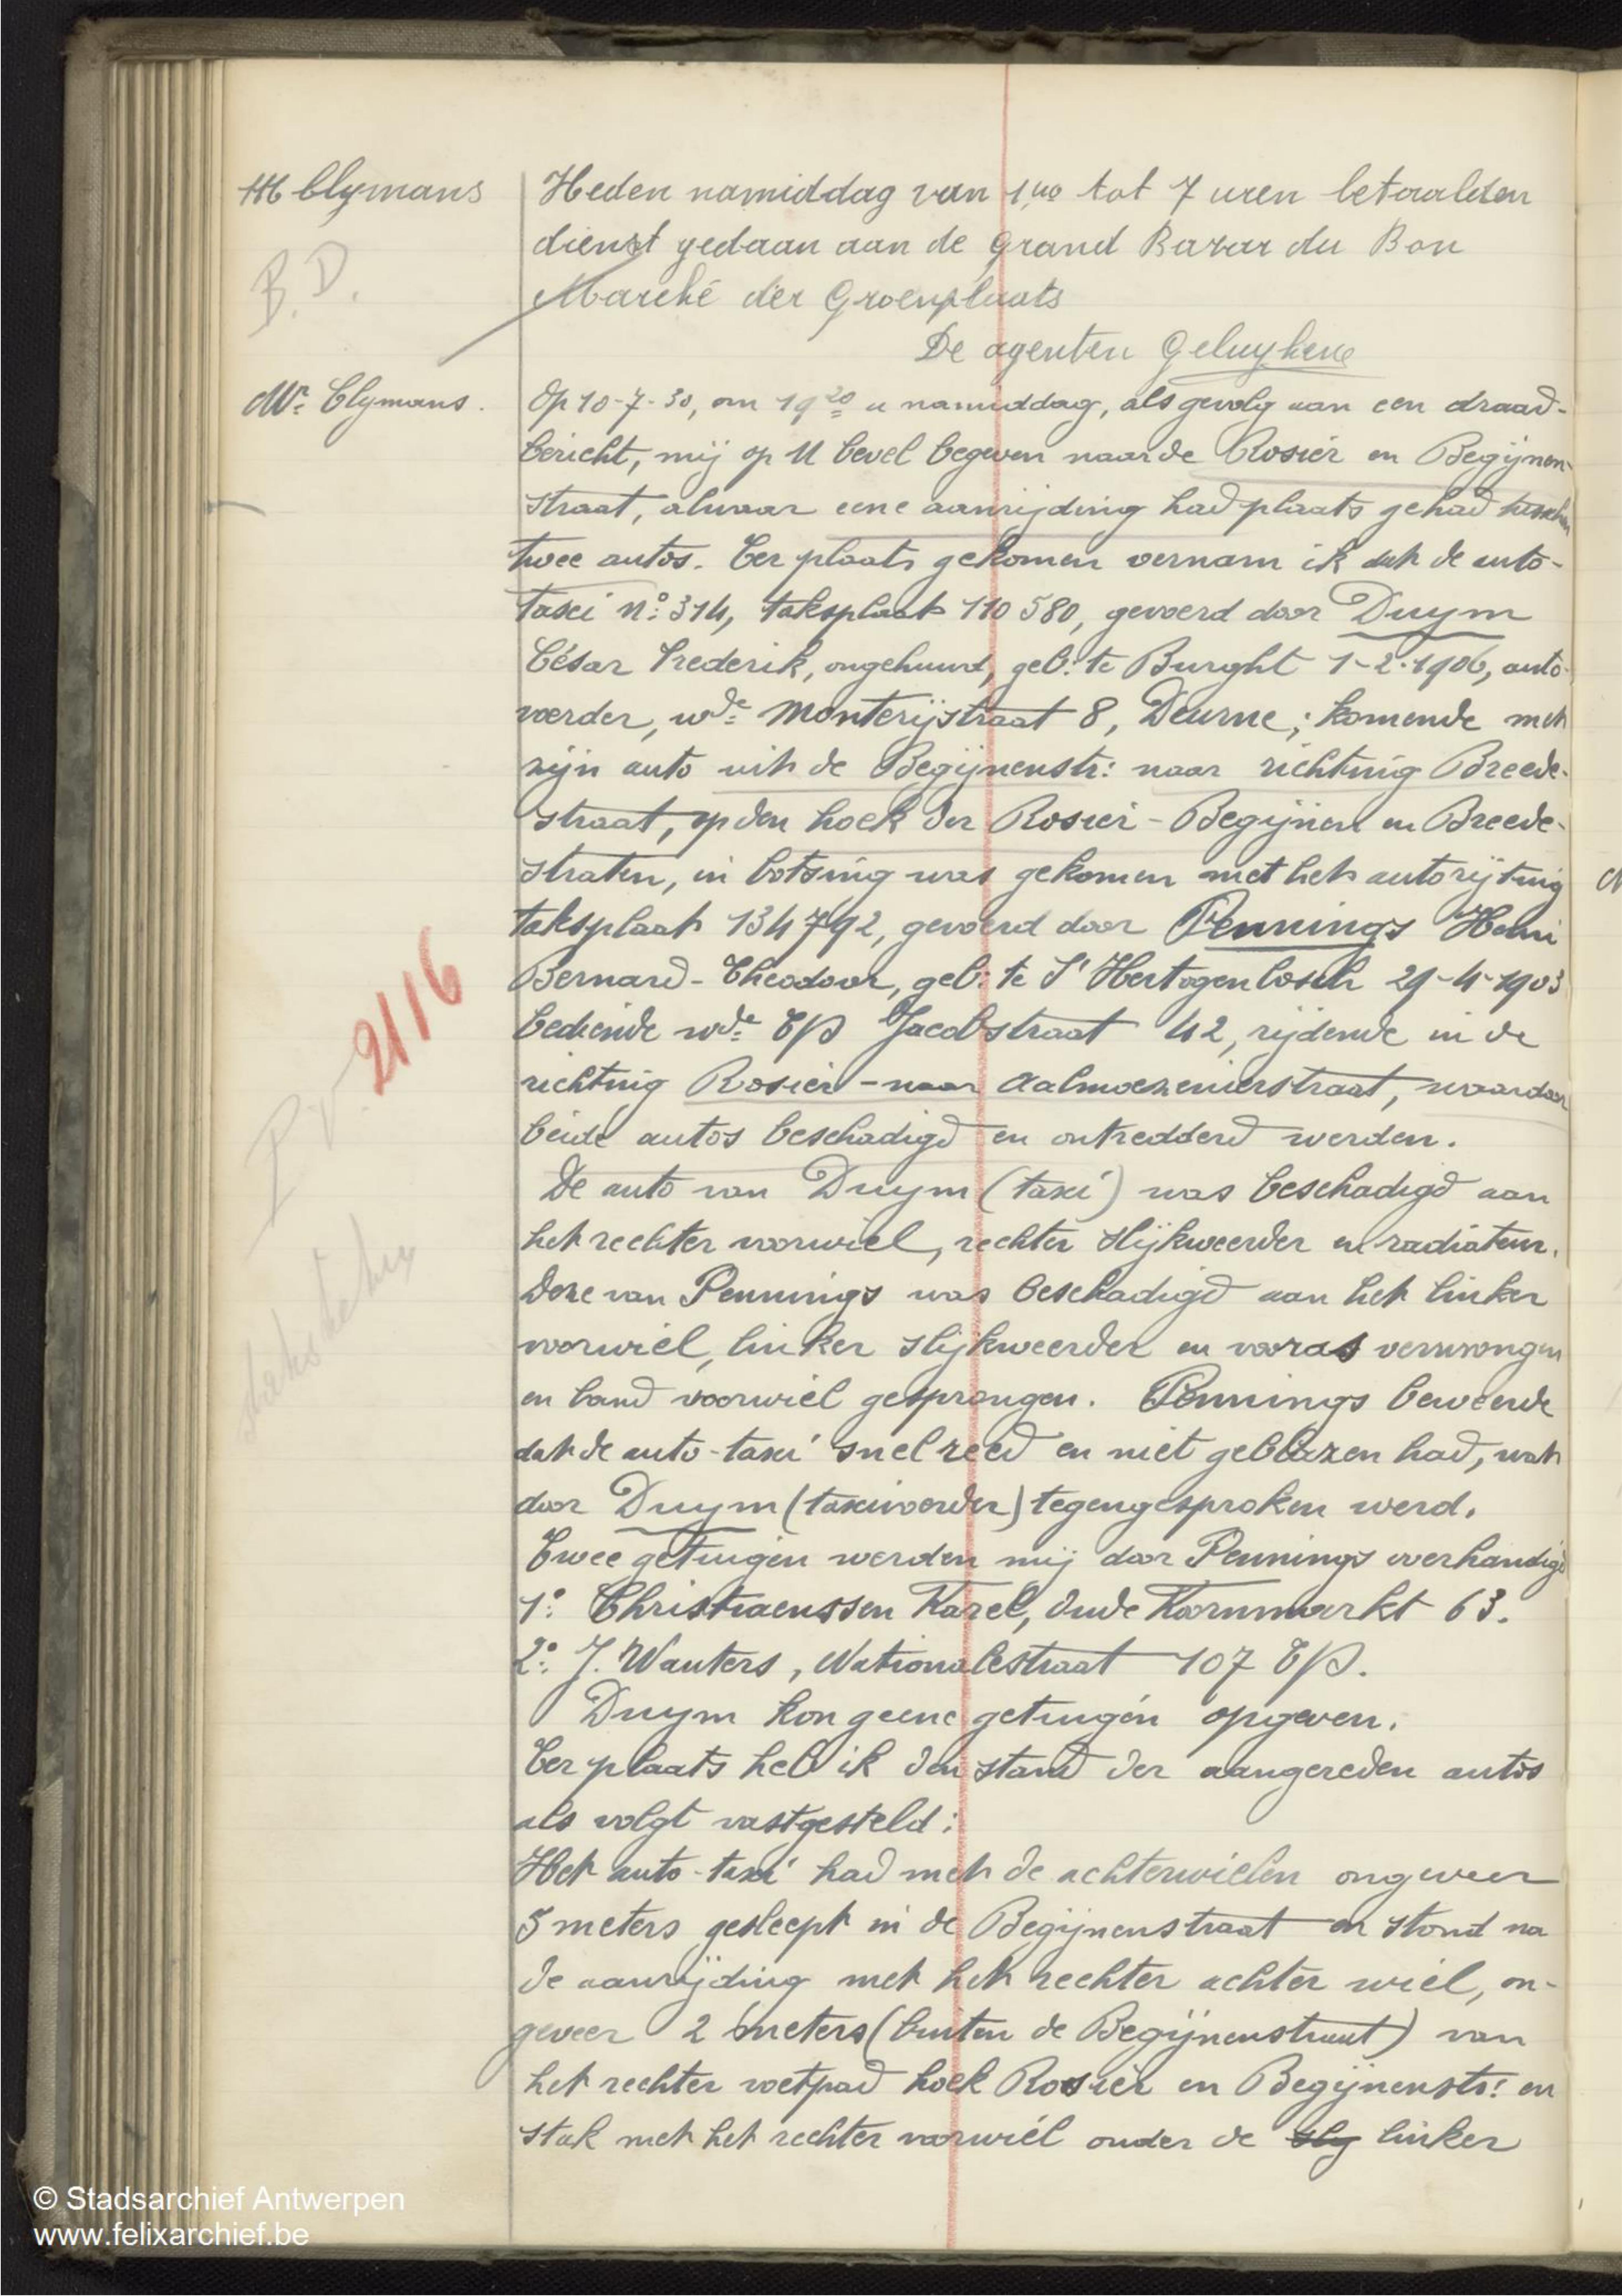 M Clymans
B. D.
Heden namiddag van 1,40 tot 7 uren betaalden
dienst gedaan aan de Grand Bazar du Bon
Marché der Groenplaats
De agenten Geluykens
Mr. Clymans.
Op 10-7-30, om 19 20 u namiddag, als gevolg aan een draad-
bericht, mij op U bevel begeven naar de Rosier en Begijnen-
straat, alwaar eene aanrijding had plaats gehad tusschen
twee autos. Ter plaats gekomen vernam ik dat de auto-
taxi No: 314, taksplaat 110580, gevoerd door Duym
César Frederik, ongehuwd, geb: te Burght 1-2-1906, auto-
voerder, wde: Monterijstraat 8, Deurne; komende met
zijn auto uit de Begijnenstr: naar richting Breede-
straat, op den hoek der Rosier - Begijnen en Breede-
straten, in botsing was gekomen met het autorijtuig
taksplaat 134792, gevoerd door Pennings Henri
Bernard-Theodoor, geb: te S' Hertogenbosch 29-4-1903
bediende wde: T/S Jacobstraat 42, rijdende in de
richting Rosier - naar Aalmoezenierstraat, waardoor
beide autos beschadigd en ontredderd werden.
Pv 2116
De auto van Duym (taxi) was beschadigd aan
het rechter voorwiel, rechter slijkweerder en radiateur.
Deze van Pennings was beschadigd aan het linker
voorwiel, linker slijkweerder en vooras verwrongen
en band voorwiel gesprongen. Pennings beweerde
dat de auto-taxi snel reed en niet geblazen had, wat
door Duym (taxivoerder) tegengesproken werd.
Twee getuigen werden mij door Pennings overhandigd
1o: Christiaenssen Karel, Oude Koornmarkt 63.
2o: J. Wauters, Nationalestraat 107 T/S.
Duym kon geene getuigen opgeven.
Ter plaats heb ik den stand der aangereden autos
als volgt vastgesteld:
Het auto-taxi had met de achterwielen ongeveer
5 meters gesleept in de Begijnenstraat en stond na
de aanrijding met het rechter achter wiel, on-
geveer 2 meters (buiten de Begijnenstraat) van
het rechter voetpad hoek Rosier en Begijnenstr: en
stak met het rechter voorwiel onder de sly linker
© Stadsarchief Antwerpen
www.felixarchief.be